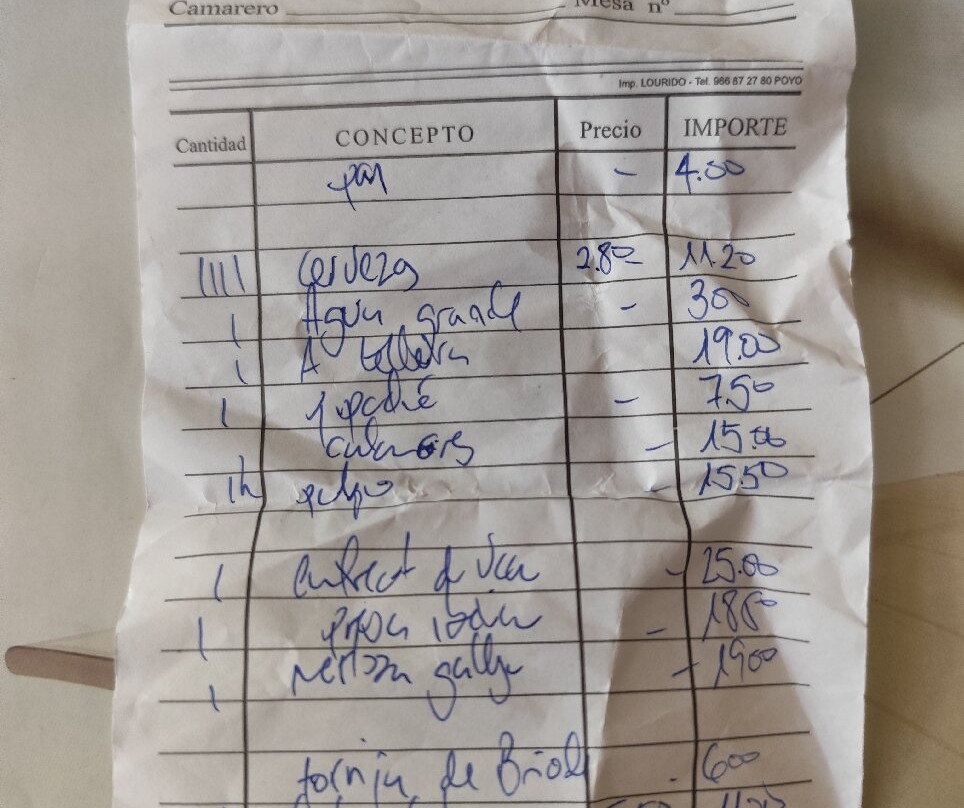 Camarero Mesa nº
Imp. LOURIDO - Tel. 986 87 27 80 POYO
Cantidad CONCEPTO Precio IMPORTE
pan - 4.00
IIII Cerveza 2.80 11.20
1 Agua grande - 300
1 A 19.00
1 - 7.50
Calamares - 15.00
pulpo - 15.50
1 Entrecot d - 25.00
1 - 1850
1 Merluza gallega - 1900
de 600